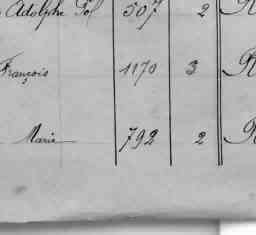 Adolphe Pol 507 2 R
François 1170 3 R
Marie 792 2 R